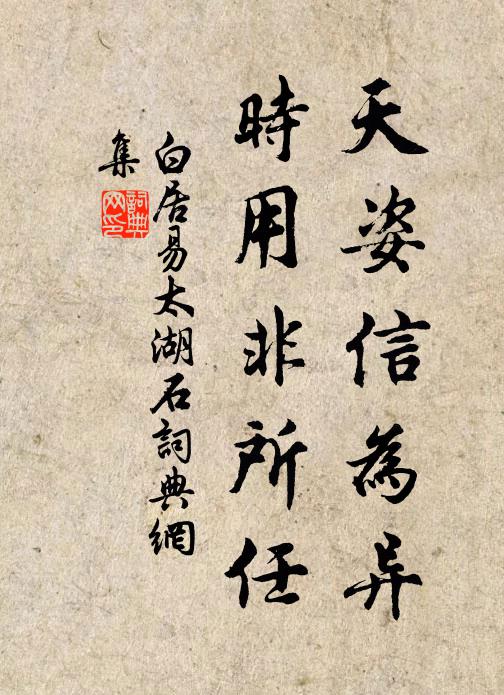 天姿信為异
時用非所任
白居易太湖石詞典網
集
詞典网印